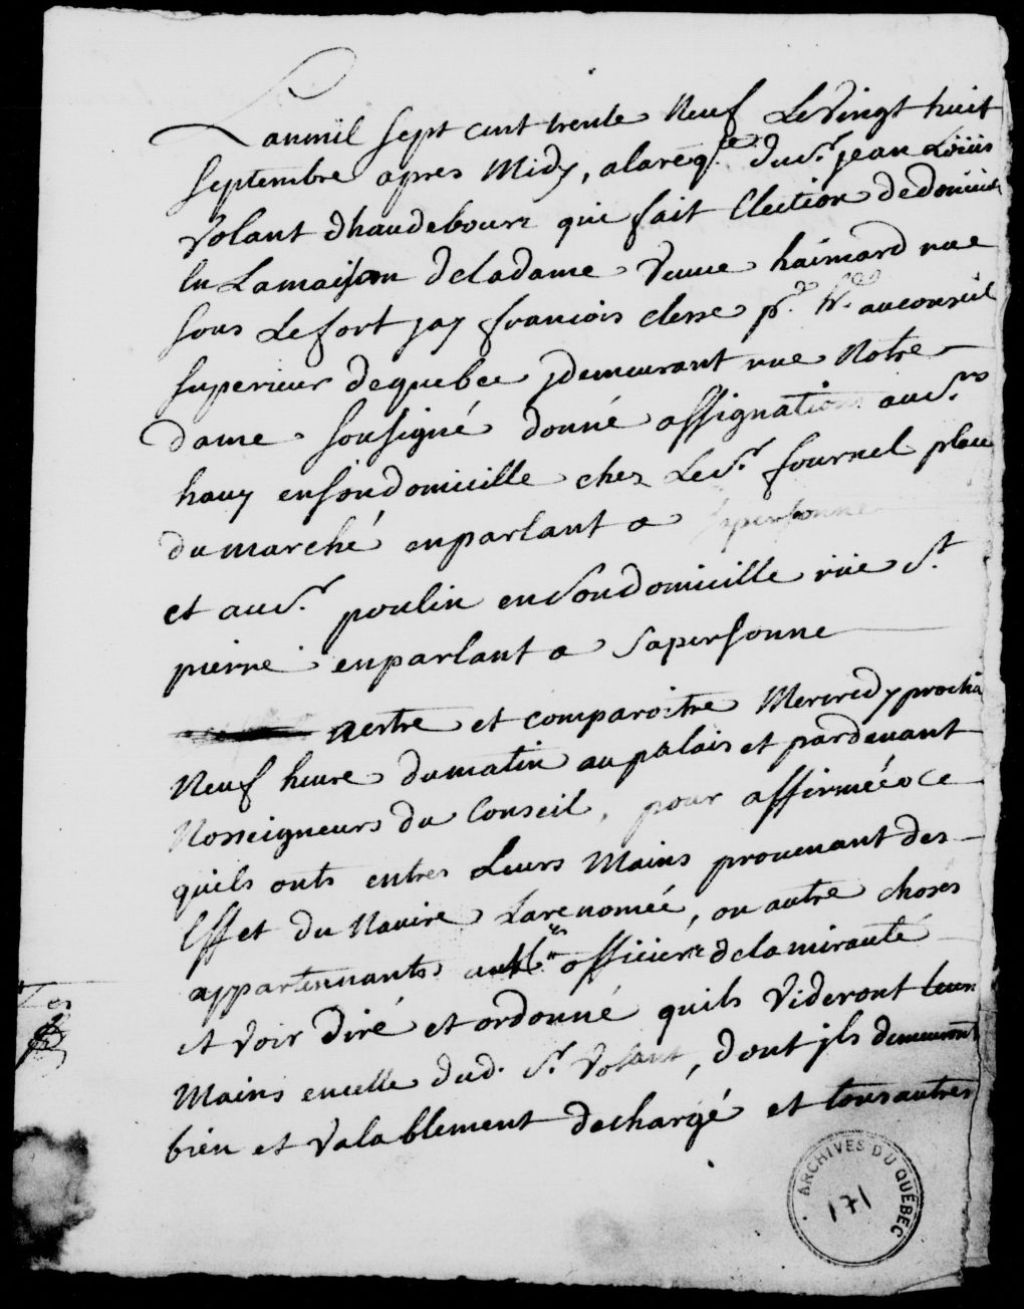 Lanmil sept cent trente Neuf Le Vingt huit
septembre apres Midy, alareq.te du S.r jean Loüis
Volant dhaudebourc qui fait Election dedomicile
En Lamaison deladame Veuve haimard rue
sous Lefort jay francois clesse p.r h.er auconseil
superieur dequebec demeurant rue Notre
dame sousigné donné assignation au S.r
havy ensondomicille chez Le S.r fournel place
dumarché enparlant a sapersonne
et au S.r poulin ensondomicille rüe S.t
pierre enparlant a sapersonne
aestre et comparoitre Mercredy prochin
Neuf heure dumatin aupalais et pardevant
Nosseigneurs du Conseil, pour affirmée ce
quils onts entres Leurs Mains provenant des
Effet du Navire Larenomée, ou autre choses
appartennants officiers delamirauté
et voir diré et ordonné quils Videront leurs
Mains encelle dud. S.r Volant, dont jls demeureront
bien et Valablement dechargé et tous autres
ARCHIVES DU QUEBEC
171